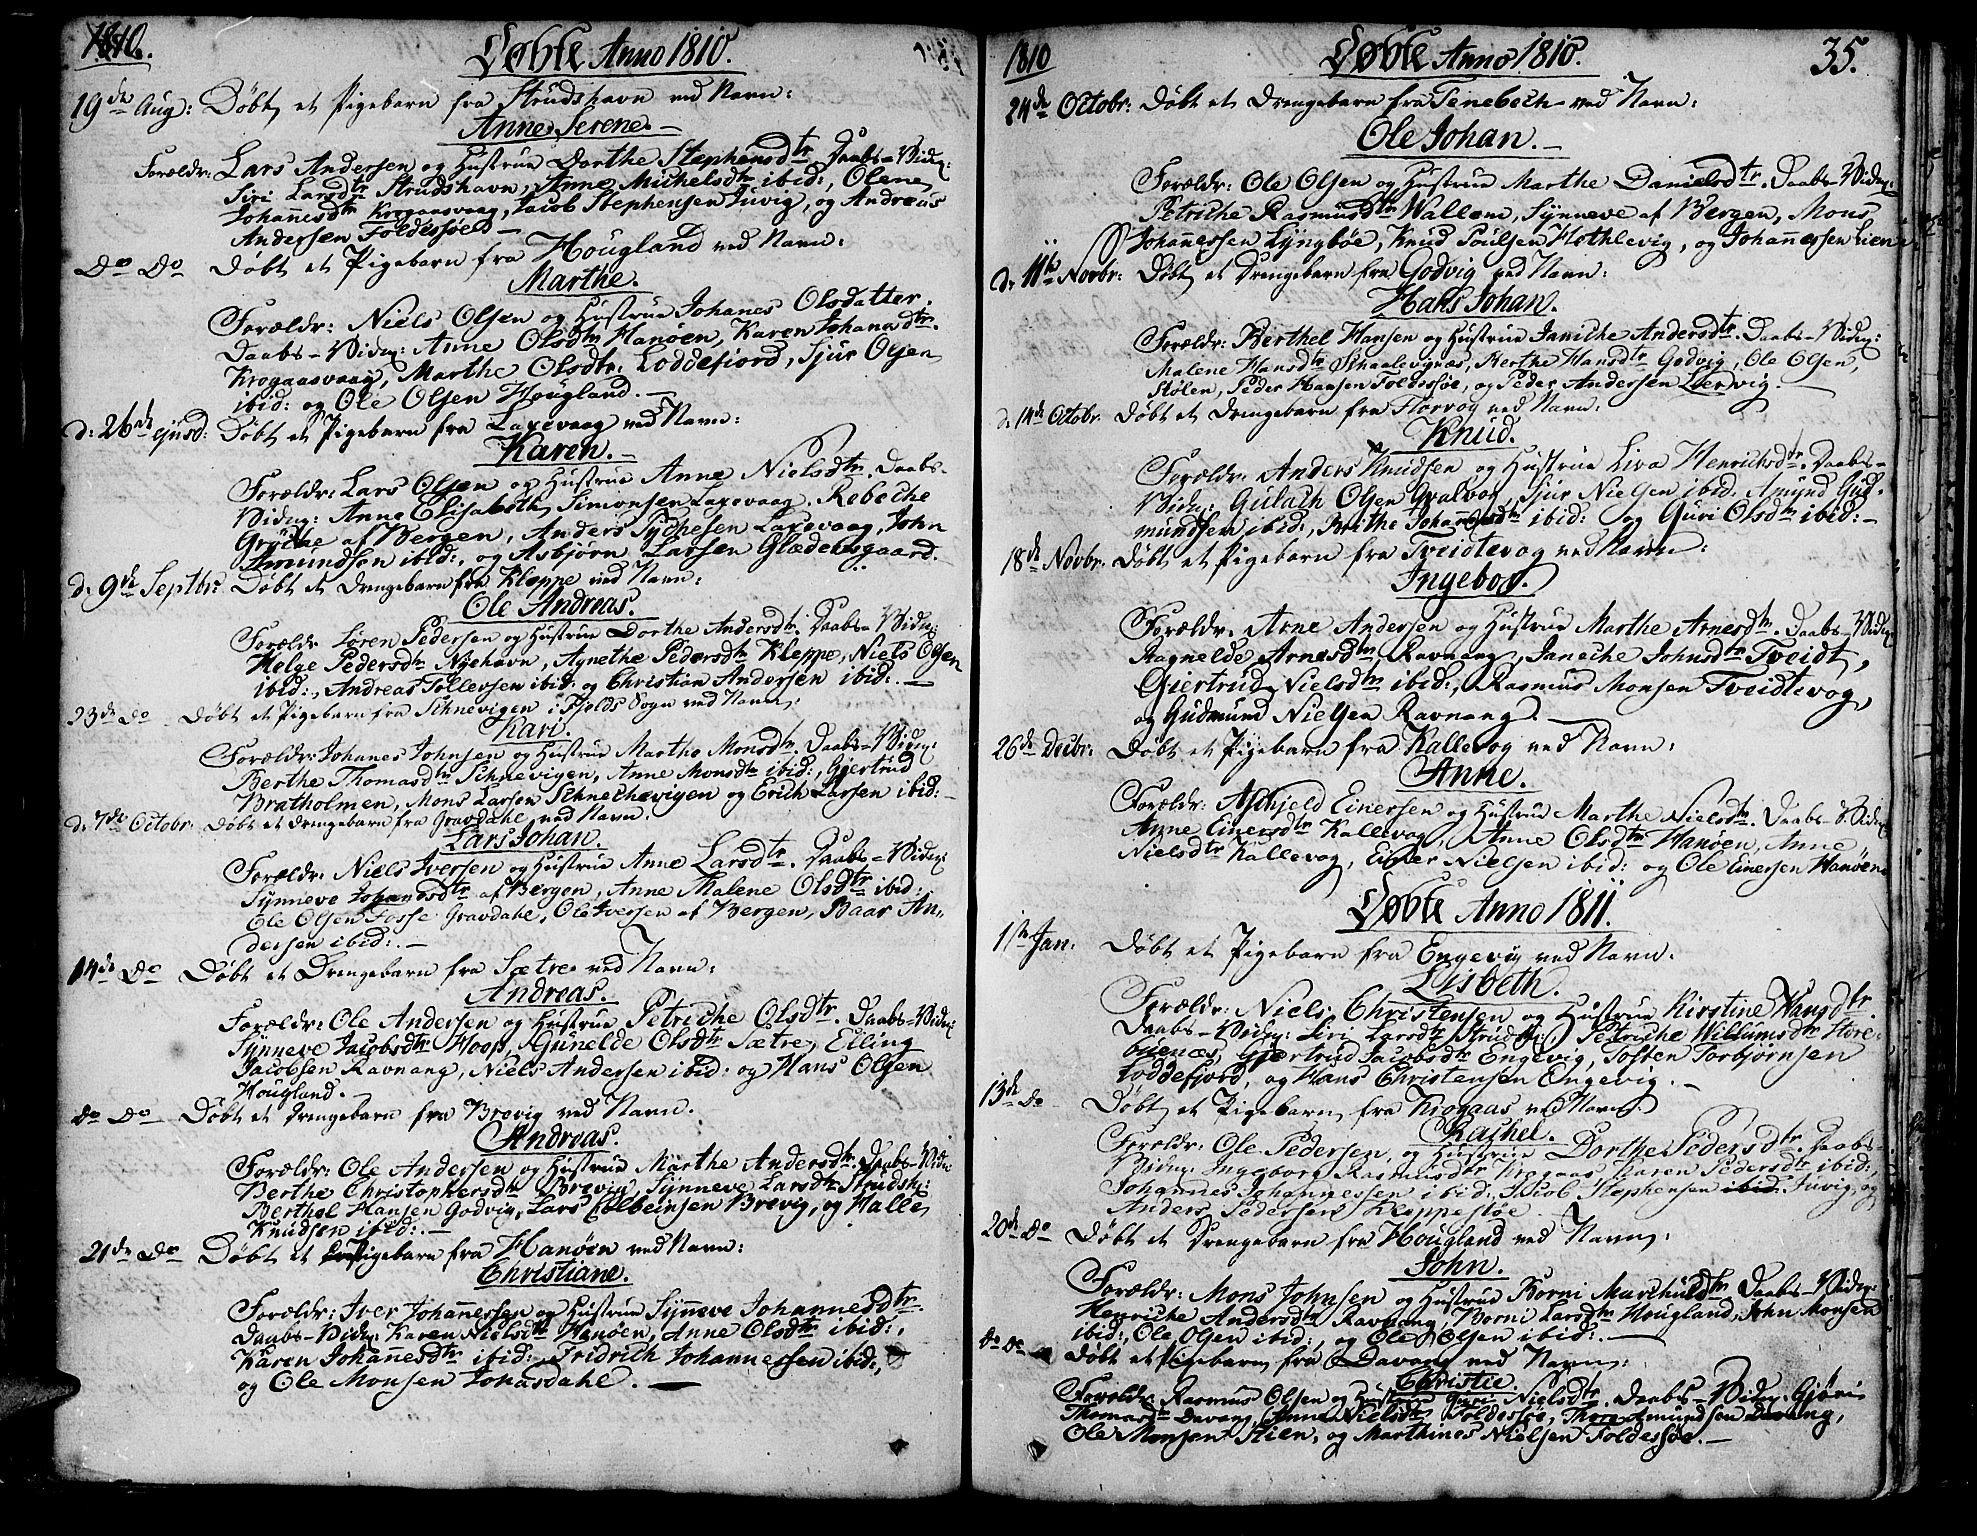 1810.
Døbte Anno 1810.
19de Aug: Døbt et Pigebarn fra Strudshavn ved Navn:
Anne Serene.
Forældr: Lars Andersen og Hustrue Dorthe Stephensdtr. Daabs-Vidn:
Siri Larsdtr Strudshavn, Anne Michelsdtr ibid:, Olene
Johannesdtr Krogaasvaag, Jacob Stephensen Juvig, og Andreas
Andersen Foldessøe
Do Do Døbt et Pigebarn fra Hougland ved Navn:
Marthe.
Forældr: Niels Olsen og Hustrue Johanes Olsdatter.
Daabs-Vidn: Anne Olsdtr Hanøen, Karen Johansdtr.
Krogaasvaag, Marthe Olsdtr: Loddefjord, Sjur Olsen
ibid: og Ole Olsen Hougland.
d: 26de ejusd: Døbt et Pigebarn fra Laxevaag ved Navn:
Karen.
Forældr: Lars Olsen og Hustrue Anne Nielsdtr. Daabs-
Vidn: Anne Elisabeth Simonsen Laxevaag, Rebeche
af Bergen, Anders Laxevaag, John
Amundsen ibid:, og Asbjørn Larsen Glædensgaard.
d: 9de Septbr: Døbt et Drengebarn fra Kleppe ved Navn:
Ole Andreas.
Forældr Søren Pedersen og Hustrue Dorthe Andersdtr. Daabs-Vidn:
Helge Pedersdtr Nyehavn, Agnethe Pedersdtr Kleppe, Niels Olsen
ibid:, Andreas Tollevsen ibid: og Christian Andersen ibid:.
23de Do Døbt et Pigebarn fra Schnevigen i Fjelds Sogn ved Navn:
Kari.
Forældr: Johanes Johnsen og Hustrue Marthe Monsdtr. Daabs-Vidn:
Berthe Thomasdtr Schnevigen, Anne Monsdtr ibid:, Gjertrud
Bratholmen, Mons Larsen Schnechevigen og Erich Larsen ibid:
d: 7de Octobr: Døbt et Drengebarn fra Gravdahl ved Navn:
Lars Johan.
Forældr: Niels Iversen og Hustrue Anne Larsdtr. Daabs-Vidn:
Synneve Johansdtr af Bergen, Anne Malene Olsdtr ibid:
Ole Olsen Fosse Gravdahl, Ole Iversen af Bergen, Baar An-
dersen ibid:.
14de Do Døbt et Drengebarn fra Sætre ved Navn:
Andreas.
Forældr: Ole Andersen og Hustrue Petriche Olsdtr. Daabs-Vidn:
Synneve Jacobsdtr Hoop, Gunelde Olsdtr Sætre, Elling
Jacobsen Ravnang, Niels Andersen ibid: og Hans Olsen
Hougland.
Do Do Døbt et Drengebarn fra Brevig ved Navn.
Andreas.
Forældr: Ole Andersen og Hustrue Marthe Andersdtr. Daabs-Vidn:
Berthe Christophersdtr Brevig, Synneve Larsdtr Strudsh:
Berthel Hansen Godvig, Lars Brevig, og Halle
Knudsen ibid:.
21de Do Døbt et Pigebarn fra Hanøen ved Navn:
Christiane.
Forældr: Iver Johannessen og Hustrue Synneve Johannesdtr.
Daabs-Vidn: Karen Nielsdtr Hanøen, Anne Olsdtr ibid:,
Karen Johannesdtr ibid: Fridrich Johannessen ibid:,
og Ole Monsen Jonasdahl.
1810
Døbte Anno 1810.
35.
24de Octobr: Døbt et Drengebarn fra Tenebech ved Navn:
Ole Johan.
Forældr: Ole Olsen og Hustrue Marthe Danielsdtr. Daabs-Vidn:
Petriche Rasmusdtr Wallem, Synneve af Bergen, Mons
Johannessen Lyngbøe, Knud Poulsen Hethlevig, og Johannessen Lien
d: 11te Novbr: Døbt et Drengebarn fra Godvig ved Navn:
Hans Johan.
Forældr: Berthel Hansen og Hustrue Janiche Andersdtr. Daabs-Vidn:
Malene Hansdtr Skaalevignæs, Berthe Hansdtr Godvig, Ole Olsen,
Stølen, Peder Hansen Foldessøe, og Peder Andersen Lervig.
d: 14de Octobr. Døbt et Drengebarn fra Florvog ved Navn:
Knud.
Forældr: Anders Knudsen og Hustrue Liva Henrichsdtr. Daabs-
Vidn: Gulach Olsen, Sjur Nielsen ibid. Amund Gud-
mundsen ibid:, Brithe Johannesdtr ibid: og Guri Olsdtr ibid:
18de Novbr. Døbt et Pigebarn fra Tveidtevog ved Navn:
Ingebor.
Forældr: Arne Andersen og Hustrue Marthe Arnesdtr. Daabs-Vidn:
Ragnelde Arnesdtr, Ravnang, Janeche Johnsdtr Tveidt,
Giertrud Nielsdtr ibid:, Rasmus Monsen Tveidtevog,
og Gudmund Nielsen Ravnang.
26de Decbr: Døbt et Pigebarn fra Kallevog ved Navn:
Anne.
Forældr: Aschjeld Einersen og Hustrue Marthe Nielsdtr. Daabs-Vidn:
Anne Einersdtr Kallevog, Anne Olsdtr Hanøen, Anne
Nielsdtr Kallevog, Einer Nielsen ibid: og Ole Einersen Hanøen
Døbte Anno 1811.
1ste Jan: Døbt et Pigebarn fra Engevig ved Navn:
Lisbeth.
Forældr: Niels Christensen og Hustrue Kirstine Hansdtr.
Daabs-Vidn: Siri Larsdtr Strudsh: Petriche Willumsdtr Store-
Gjertrud Jacobsdtr Engevig, Tosten Torbjørnsen
Loddefjord, og Hans Christensen Engevig.
13de Do Døbt et Pigebarn fra Krogaas ved Navn:
Rachel.
Forældr: Ole Pedersen, og Hustrue Dorthe Pedersdtr. Daabs-
Vidn: Ingeborg Rasmusdtr Krogaas, Karen Pedersdtr ibid:,
Johannes Johannessen ibid: Jacob Stephensen ibid. Juvig, og
Anders Pedersen Kleppestøe.
20de Do Døbt et Drengebarn fra Hougland ved Navn:
John.
Forældr: Mons Johnsen og Hustrue Borni Daabs-Vidn:
Henriche Andersdtr Ravnang, Borni Larsdtr Hougland, John Monsen
ibid:, Ole Olsen ibid:, og Ole Olsen ibid:.
Do Do Døbt et Pigebarn fra Davang ved Navn:
Christie.
Forældr: Rasmus Olsen og Hustrue Guri Nielsdtr. Daabs-Vidn: Gjøri
Thomasdtr Davang, Anne Nielsdtr Foldessøe, Amundsen Davang,
Ole Monsen Stien, og Marthines Nielsen Foldessøe.